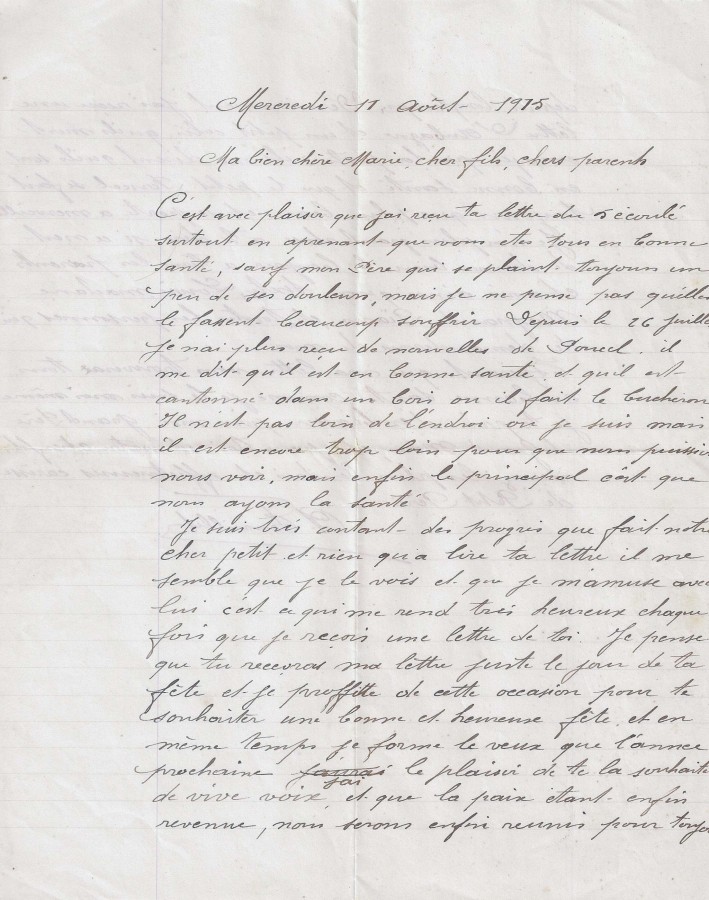 Mercredi 11 Août 1915
Ma bien chère Marie, cher fils, chers parents
C'est avec plaisir que j'ai reçu ta lettre du 5 écoulé
surtout en aprenant que vous etes tous en bonne
santé, sauf mon Père qui se plaint toujours un
peu de ses douleurs, mais je ne pense pas qu'elles
le fassent beaucoup souffrir Depuis le 26 juille
je n'ai plus reçu de nouvelles de il
me dit qu'il est en bonne santé et qu'il est
cantonné dans un bois ou il fait le bucheron
Il n'est pas loin de l'endroi ou je suis mais
il est encore trop loin pour que nous puission
nous voir, mais enfin le principal c'est que
nous ayons la santé
Je suis très contant des progres que fait notr
cher petit et rien qu'a lire ta lettre il me
semble que je le vois et que je m'amuse avec
lui c'est ce qui me rend très heureux chaque
fois que je reçois une lettre de toi. Je pense
que tu recevras ma lettre juste le jour de ta
fête et je proffitte de cette occasion pour te
souhaiter une bonne et heureuse fête, et en
même temps je forme le veux que l'annee
prochaine j'aurai le plaisir de te la souhaite
j'ai
de vive voix, et que la paix etant enfin
revenue, nous serons enfin reunis pour toujou